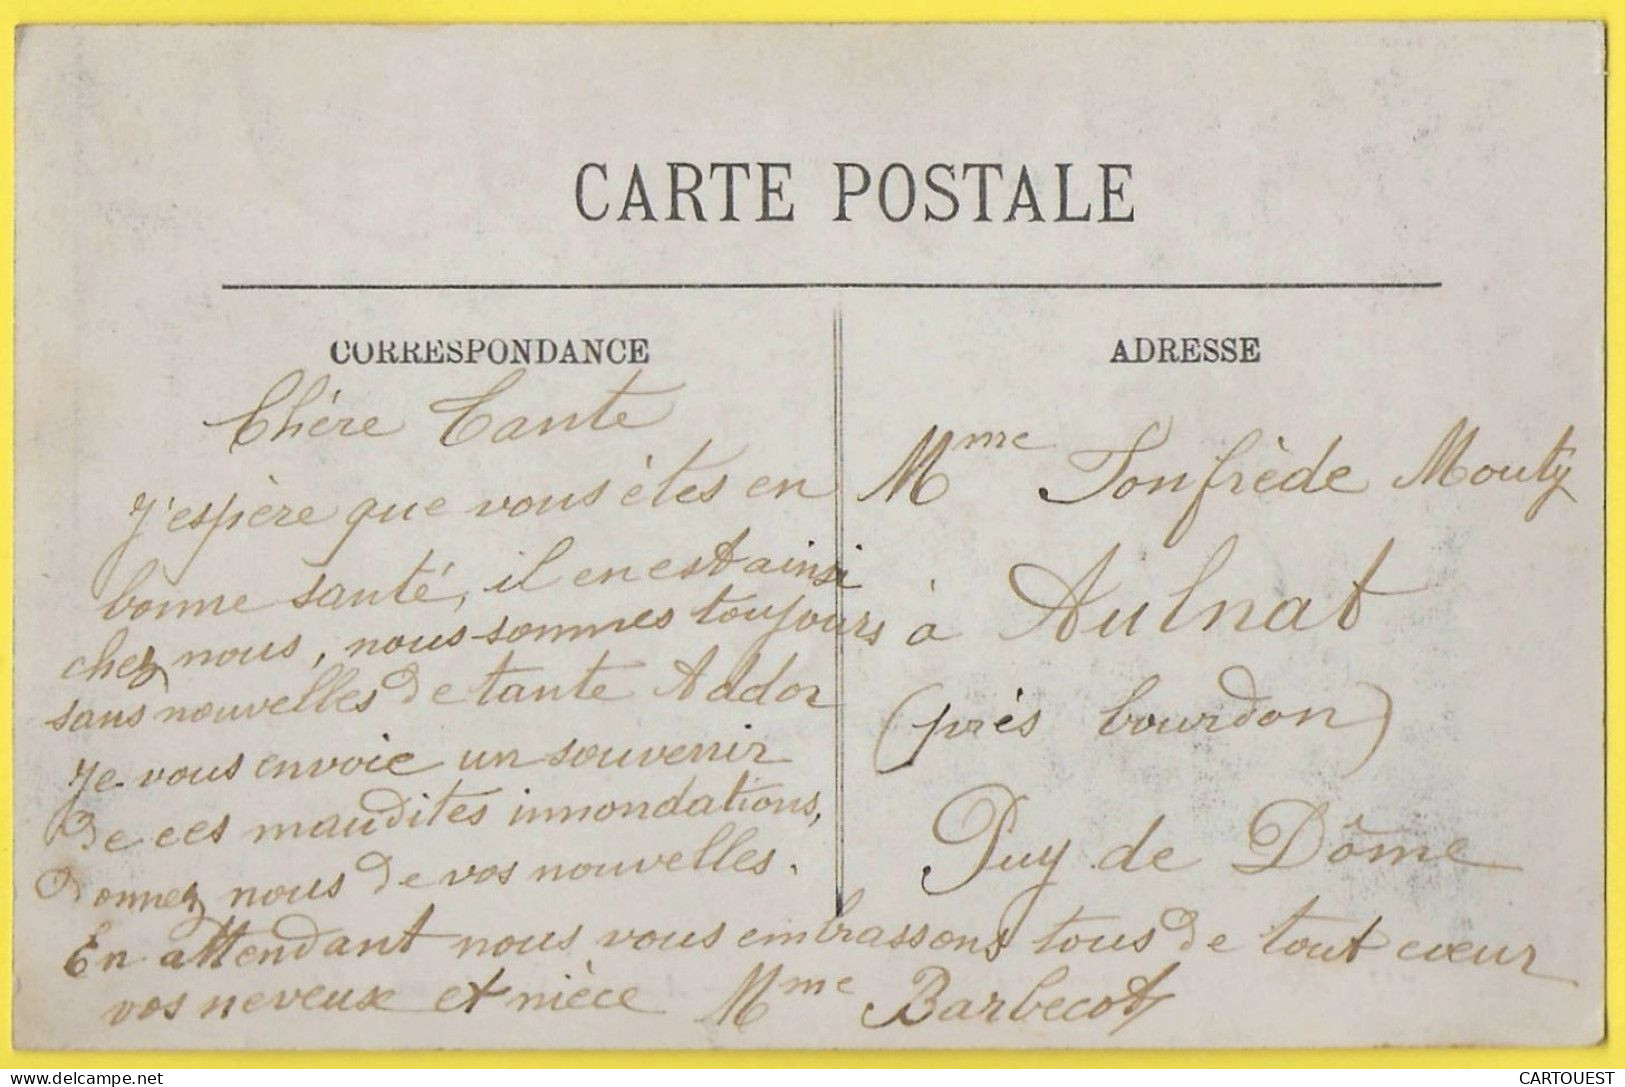 CARTE POSTALE
CORRESPONDANCE
Chère Tante
J'espère que vous êtes en
bonne santé, il en est ainsi
chez nous, nous sommes toujours
sans nouvelles de tante Addor
Je vous envoie un souvenir
de ces maudites innondations,
donnez nous de vos nouvelles.
En attendant nous vous embrassons tous de tout cœur
vos neveux et nièce Mme Barbecot
ADRESSE
Mme Tonfrède Mouty
à Aulnat
(près bourdon)
Puy de Dôme
CARTOUEST